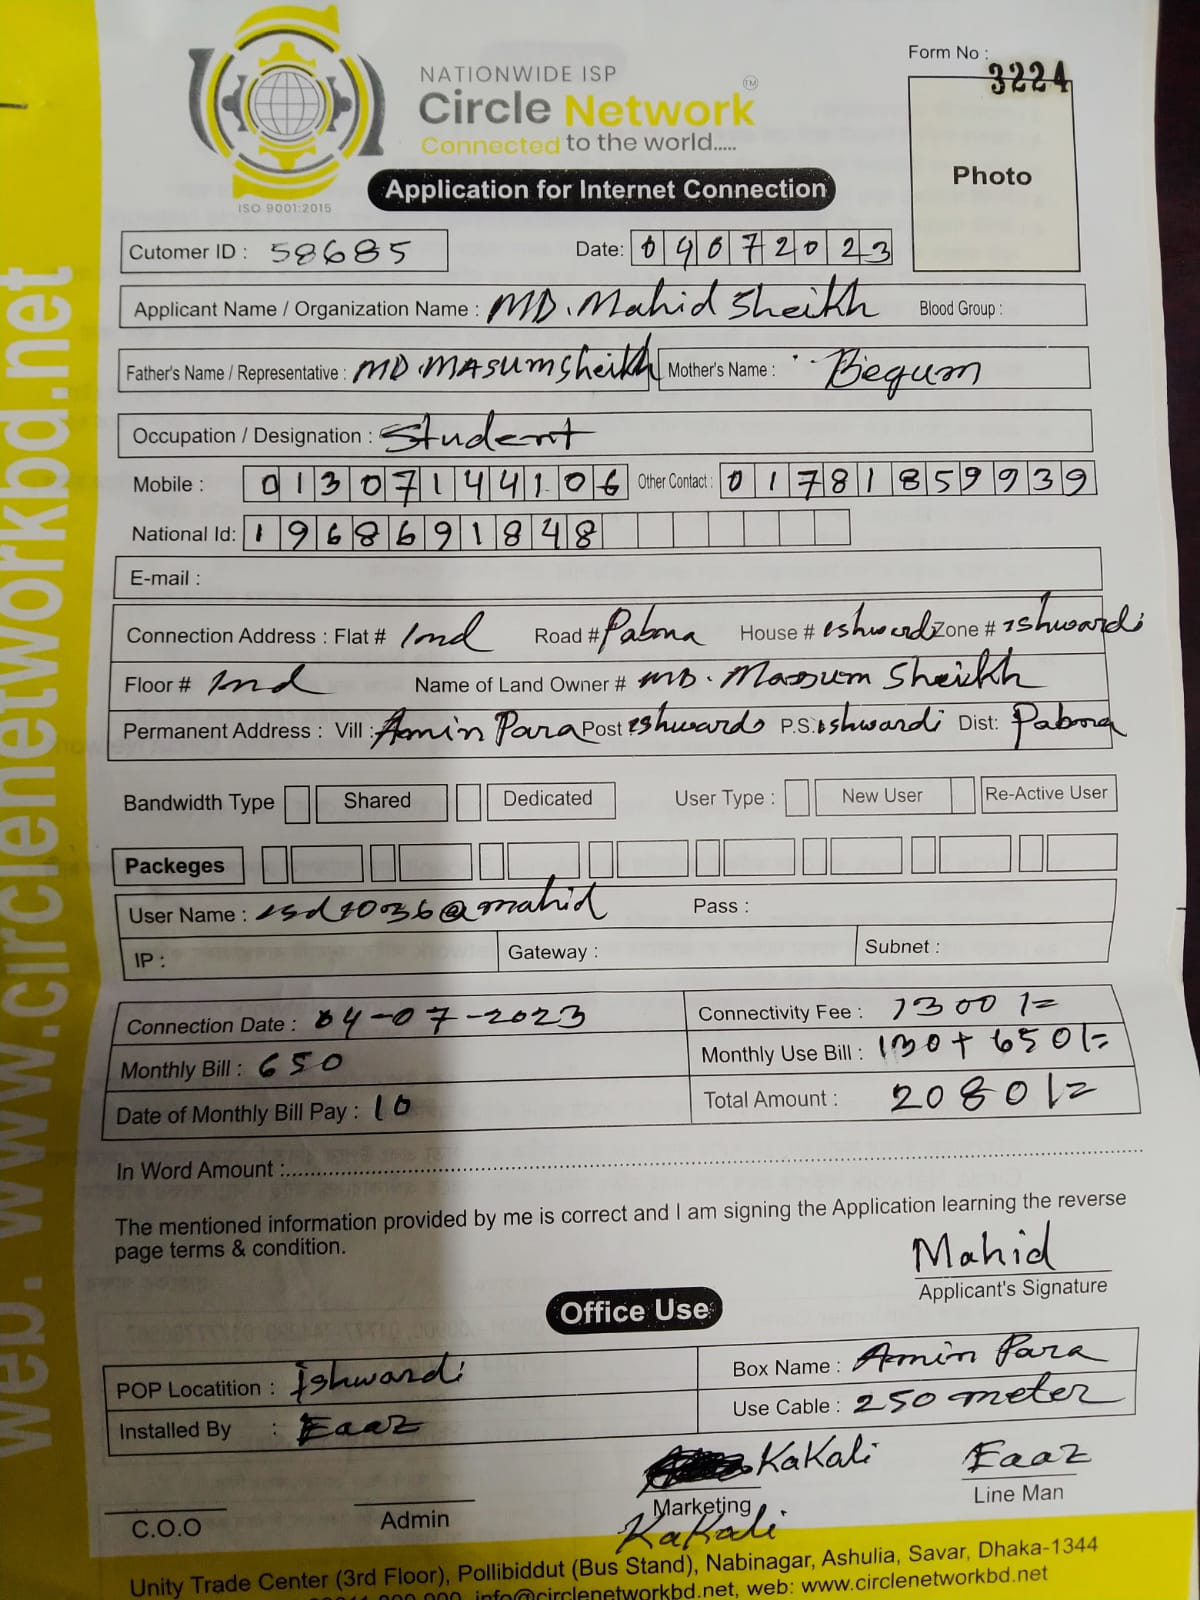 web: www.circlenetworkbd.net
NATIONWIDE ISP
Circle Network ™
Connected to the world.....
ISO 9001:2015
Form No : 3224
Photo
Application for Internet Connection
Cutomer ID : 58685 Date: 04072023
Applicant Name / Organization Name : MD. Mahid Sheikh Blood Group :
Father's Name / Representative : MD. MASUM Sheikh Mother's Name : Begum
Occupation / Designation : Student
Mobile : 01307144106 Other Contact : 01781859939
National Id: 1968691848
E-mail :
Connection Address : Flat # 1nd Road # Pabna House # ishwardi Zone # ishwardi
Floor # 1nd Name of Land Owner # MD. Massum Sheikh
Permanent Address : Vill : Amin Para Post ishwardi P.S. ishwardi Dist: Pabna
Bandwidth Type Shared Dedicated User Type : New User Re-Active User
Packeges
User Name : isd1036@mahid Pass :
IP : Gateway : Subnet :
Connection Date : 04-07-2023 Connectivity Fee : 1300/=
Monthly Bill : 650 Monthly Use Bill : 130+650/=
Date of Monthly Bill Pay : 10 Total Amount : 2080/=
In Word Amount :
The mentioned information provided by me is correct and I am signing the Application learning the reverse
page terms & condition.
Mahid
Applicant's Signature
Office Use
POP Locatition : Ishwardi Box Name : Amin Para
Installed By : Eaaz Use Cable : 250 meter
KaKali Eaaz
C.O.O Admin Marketing Line Man
KaKali
Unity Trade Center (3rd Floor), Pollibiddut (Bus Stand), Nabinagar, Ashulia, Savar, Dhaka-1344
info@circlenetworkbd.net, web: www.circlenetworkbd.net